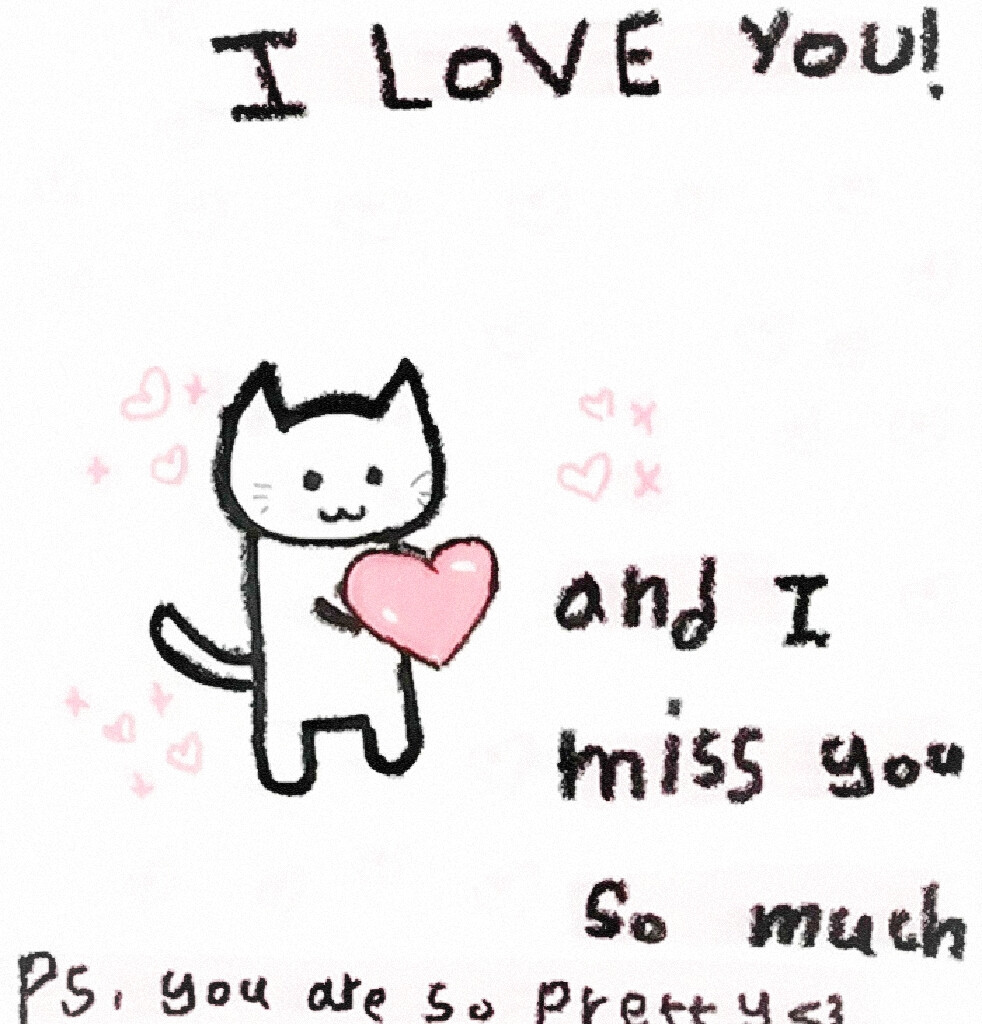 I LOVE YOU!
and I
miss you
so much
Ps, you are so pretty <3